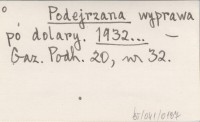 Podejrzana wyprawa
po dolary. 1932... –
Gaz. Podh. 20, nr 32.